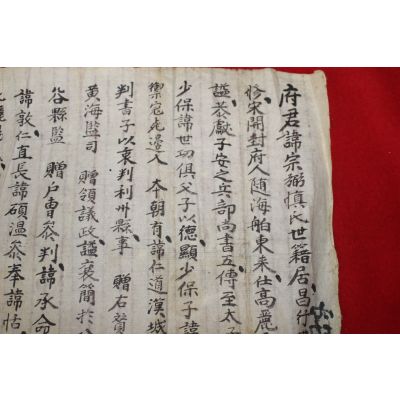 府君諱宗弼愼氏世籍居昌
修宋開封府人隨海舶東來仕高麗
諡恭獻子安之兵部尚書五傳至太子
少保諱世功俱父子以德顯少保子諱
禦寇 入 本朝有諱仁道漢城
判書子以衷判利川縣事 贈右贊
黃海監司 贈領議政諡襄簡於
谷縣監 贈戶曹叅判諱承命
諱敦仁直長諱碩溫叅奉諱怙